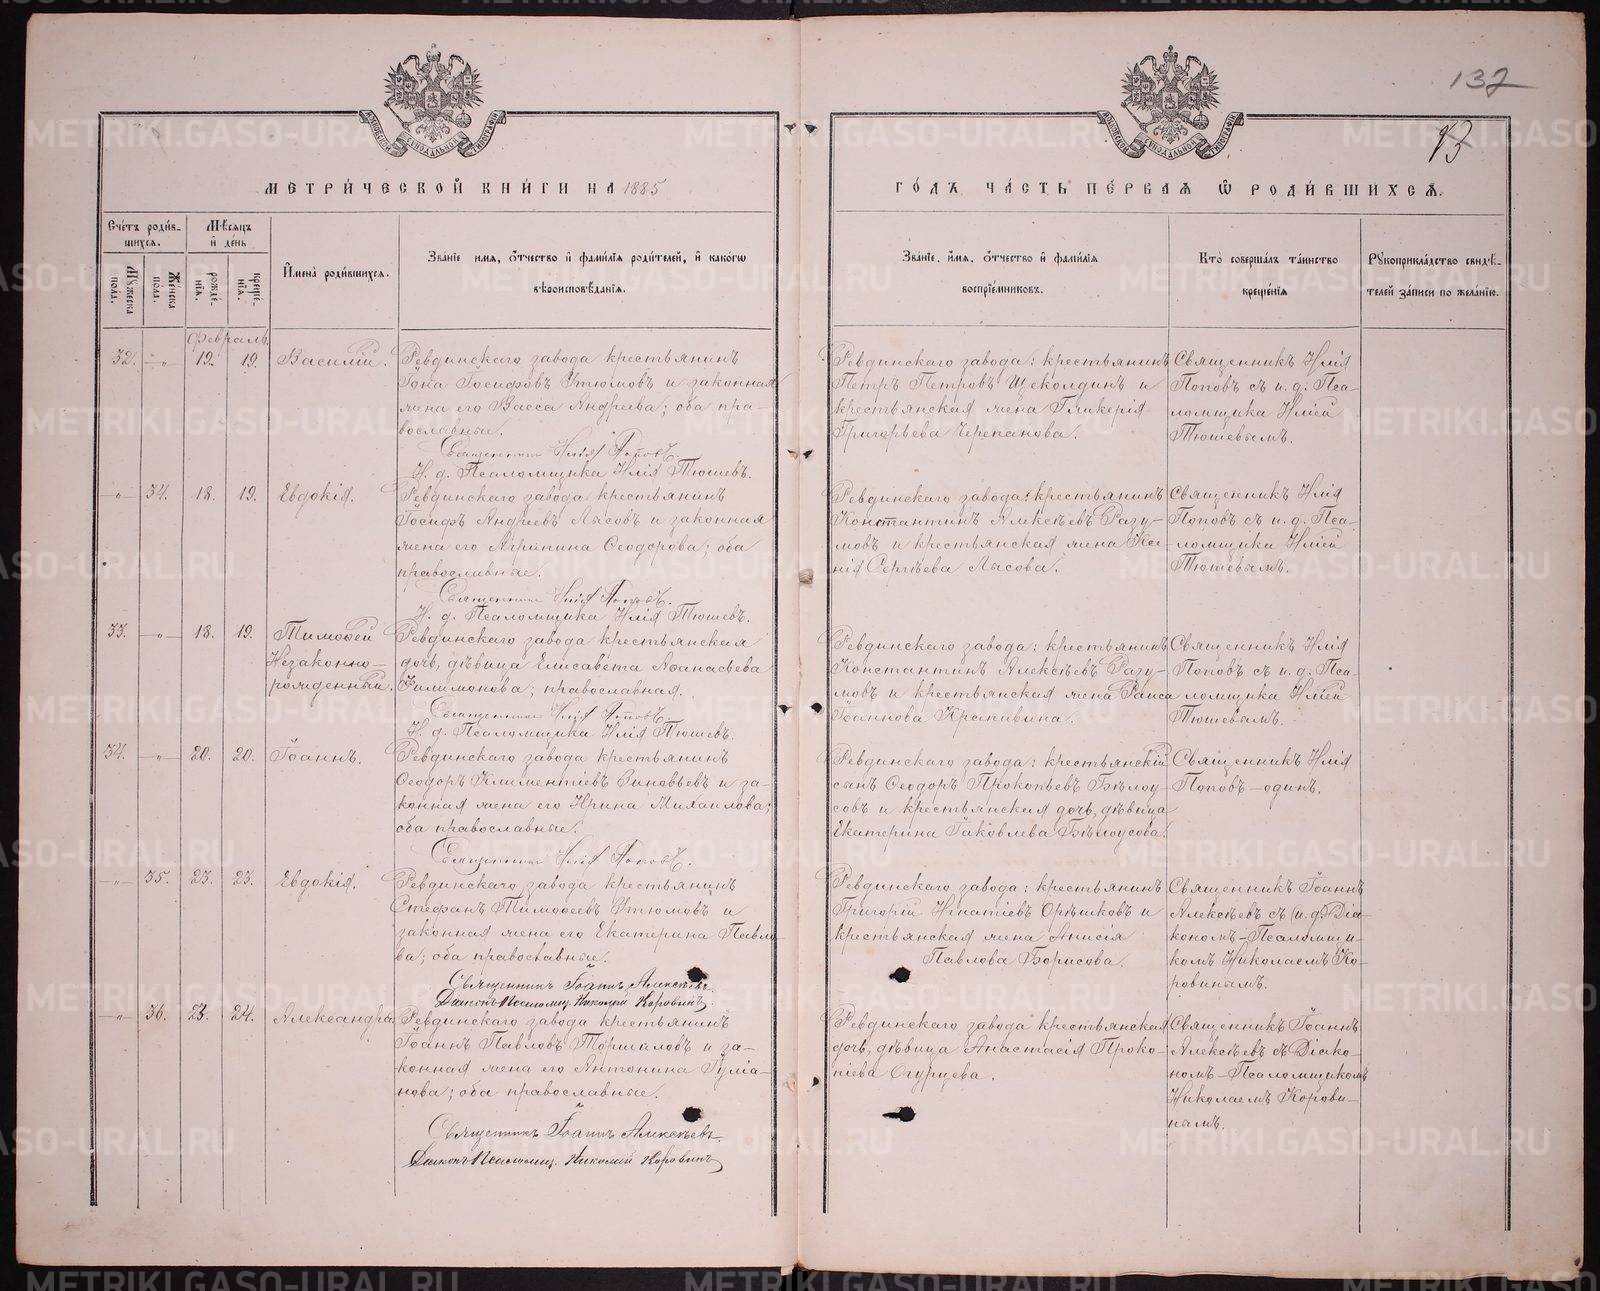 132
93
МЕТРИЧЕСКОЙ КНИГИ НА 1885
ГОДЪ ЧАСТЬ ПЕРВАЯ Ѡ РОДИВШИХСЯ.
Счетъ родив-
шихся.
Мѣсяцъ
и день
Мужеска
пола.
Женска
пола.
рожде-
нія.
креще-
нія.
Имена родившихся.
Званіе имя, отчество и фамилія родителей, и какогѡ
вѣроисповѣданія.
Званіе, имя, отчество и фамилія
воспріемниковъ.
Кто совершалъ таинство
крещенія
Рукоприкладство свидѣ-
телей записи по желанію.
Февраль
32. — „ — 19. 19. Василій.
Ревдинскаго завода крестьянинъ
Іона Іосифовъ Утюмовъ и законная
жена его Васса Андреева; оба пра-
вославные.
Священникъ Илія Поповъ.
И. д. Псаломщика Илія Тюшевъ.
Ревдинскаго завода: крестьянинъ
Петръ Петровъ Щеколдинъ и
крестьянская жена Гликерія
Григорьева Черепанова.
Священникъ Илія
Поповъ съ и. д. Пса-
ломщика Иліей
Тюшевымъ.
— „ — 34. 18. 19. Евдокія.
Ревдинскаго завода крестьянинъ
Іосифъ Андреевъ Лясовъ и законная
жена его Агрипина Ѳеодорова; оба
православные.
Священникъ Илія Поповъ.
И. д. Псаломщика Илія Тюшевъ.
Ревдинскаго завода: крестьянинъ
Константинъ Алексѣевъ Разу-
мовъ и крестьянская жена Ксе-
нія Сергѣева Лясова.
Священникъ Илія
Поповъ съ и. д. Пса-
ломщика Иліей
Тюшевымъ.
33. — „ — 18. 19. Тимоѳей
Незаконно-
рожденный.
Ревдинскаго завода крестьянская
дочь, дѣвица Елисавета Аѳанасьева
Филимонова; православная.
Священникъ Илія Поповъ.
И. д. Псаломщика Илія Тюшевъ.
Ревдинскаго завода: крестьянинъ
Константинъ Алексѣевъ Разу-
мовъ и крестьянская жена Раиса
Іоаннова Крапивина.
Священникъ Илія
Поповъ съ и. д. Пса-
ломщика Иліей
Тюшевымъ.
34. — „ — 20. 20. Іоаннъ.
Ревдинскаго завода крестьянинъ
Ѳеодоръ Климентіевъ Зиновьевъ и за-
конная жена его Ирина Михаилова;
оба православные.
Священникъ Илія Поповъ.
Ревдинскаго завода: крестьянскій
сынъ Ѳеодоръ Прокопьевъ Бѣлоу-
совъ и крестьянская дочь, дѣвица
Екатерина Іаковлева Бѣлоусова.
Священникъ Илія
Поповъ — одинъ.
— „ — 35. 23. 23. Евдокія.
Ревдинскаго завода крестьянинъ
Стефанъ Тимоѳеевъ Утюмовъ и
законная жена его Екатерина Павло-
ва; оба православные.
Священникъ Іоаннъ Алексѣевъ.
Діаконъ-Псаломщ. Николай Коровинъ.
Ревдинскаго завода: крестьянинъ
Григорій Игнатіевъ Орѣшковъ и
крестьянская жена Анисія
Павлова Борисова.
Священникъ Іоаннъ
Алексѣевъ съ (и. д.) Діа-
кономъ-Псаломщи-
комъ Николаемъ Ко-
ровинымъ.
— „ — 36. 23. 24. Александра.
Ревдинскаго завода крестьянинъ
Іоаннъ Павловъ Торшиловъ и за-
конная жена его Антонина Іуліа-
нова; оба православные.
Священникъ Іоаннъ Алексѣевъ.
Діаконъ-Псаломщ. Николай Коровинъ
Ревдинскаго завода крестьянская
дочь, дѣвица Анастасія Проко-
піева Огурцева.
Священникъ Іоаннъ
Алексѣевъ съ Діако-
номъ-Псаломщикомъ
Николаемъ Корови-
нымъ.